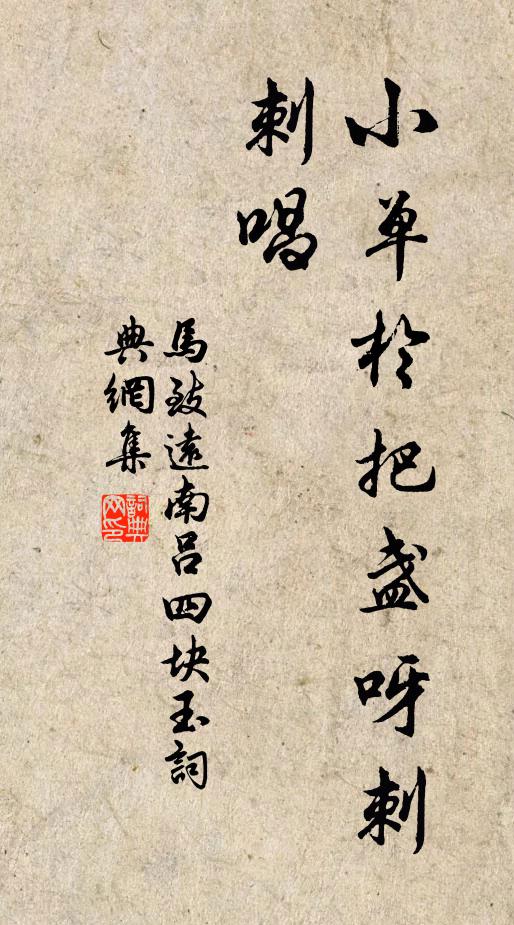 小单於把盏呀剌
剌唱
馬致遠南呂四块玉詞
典網集
詞典
网印